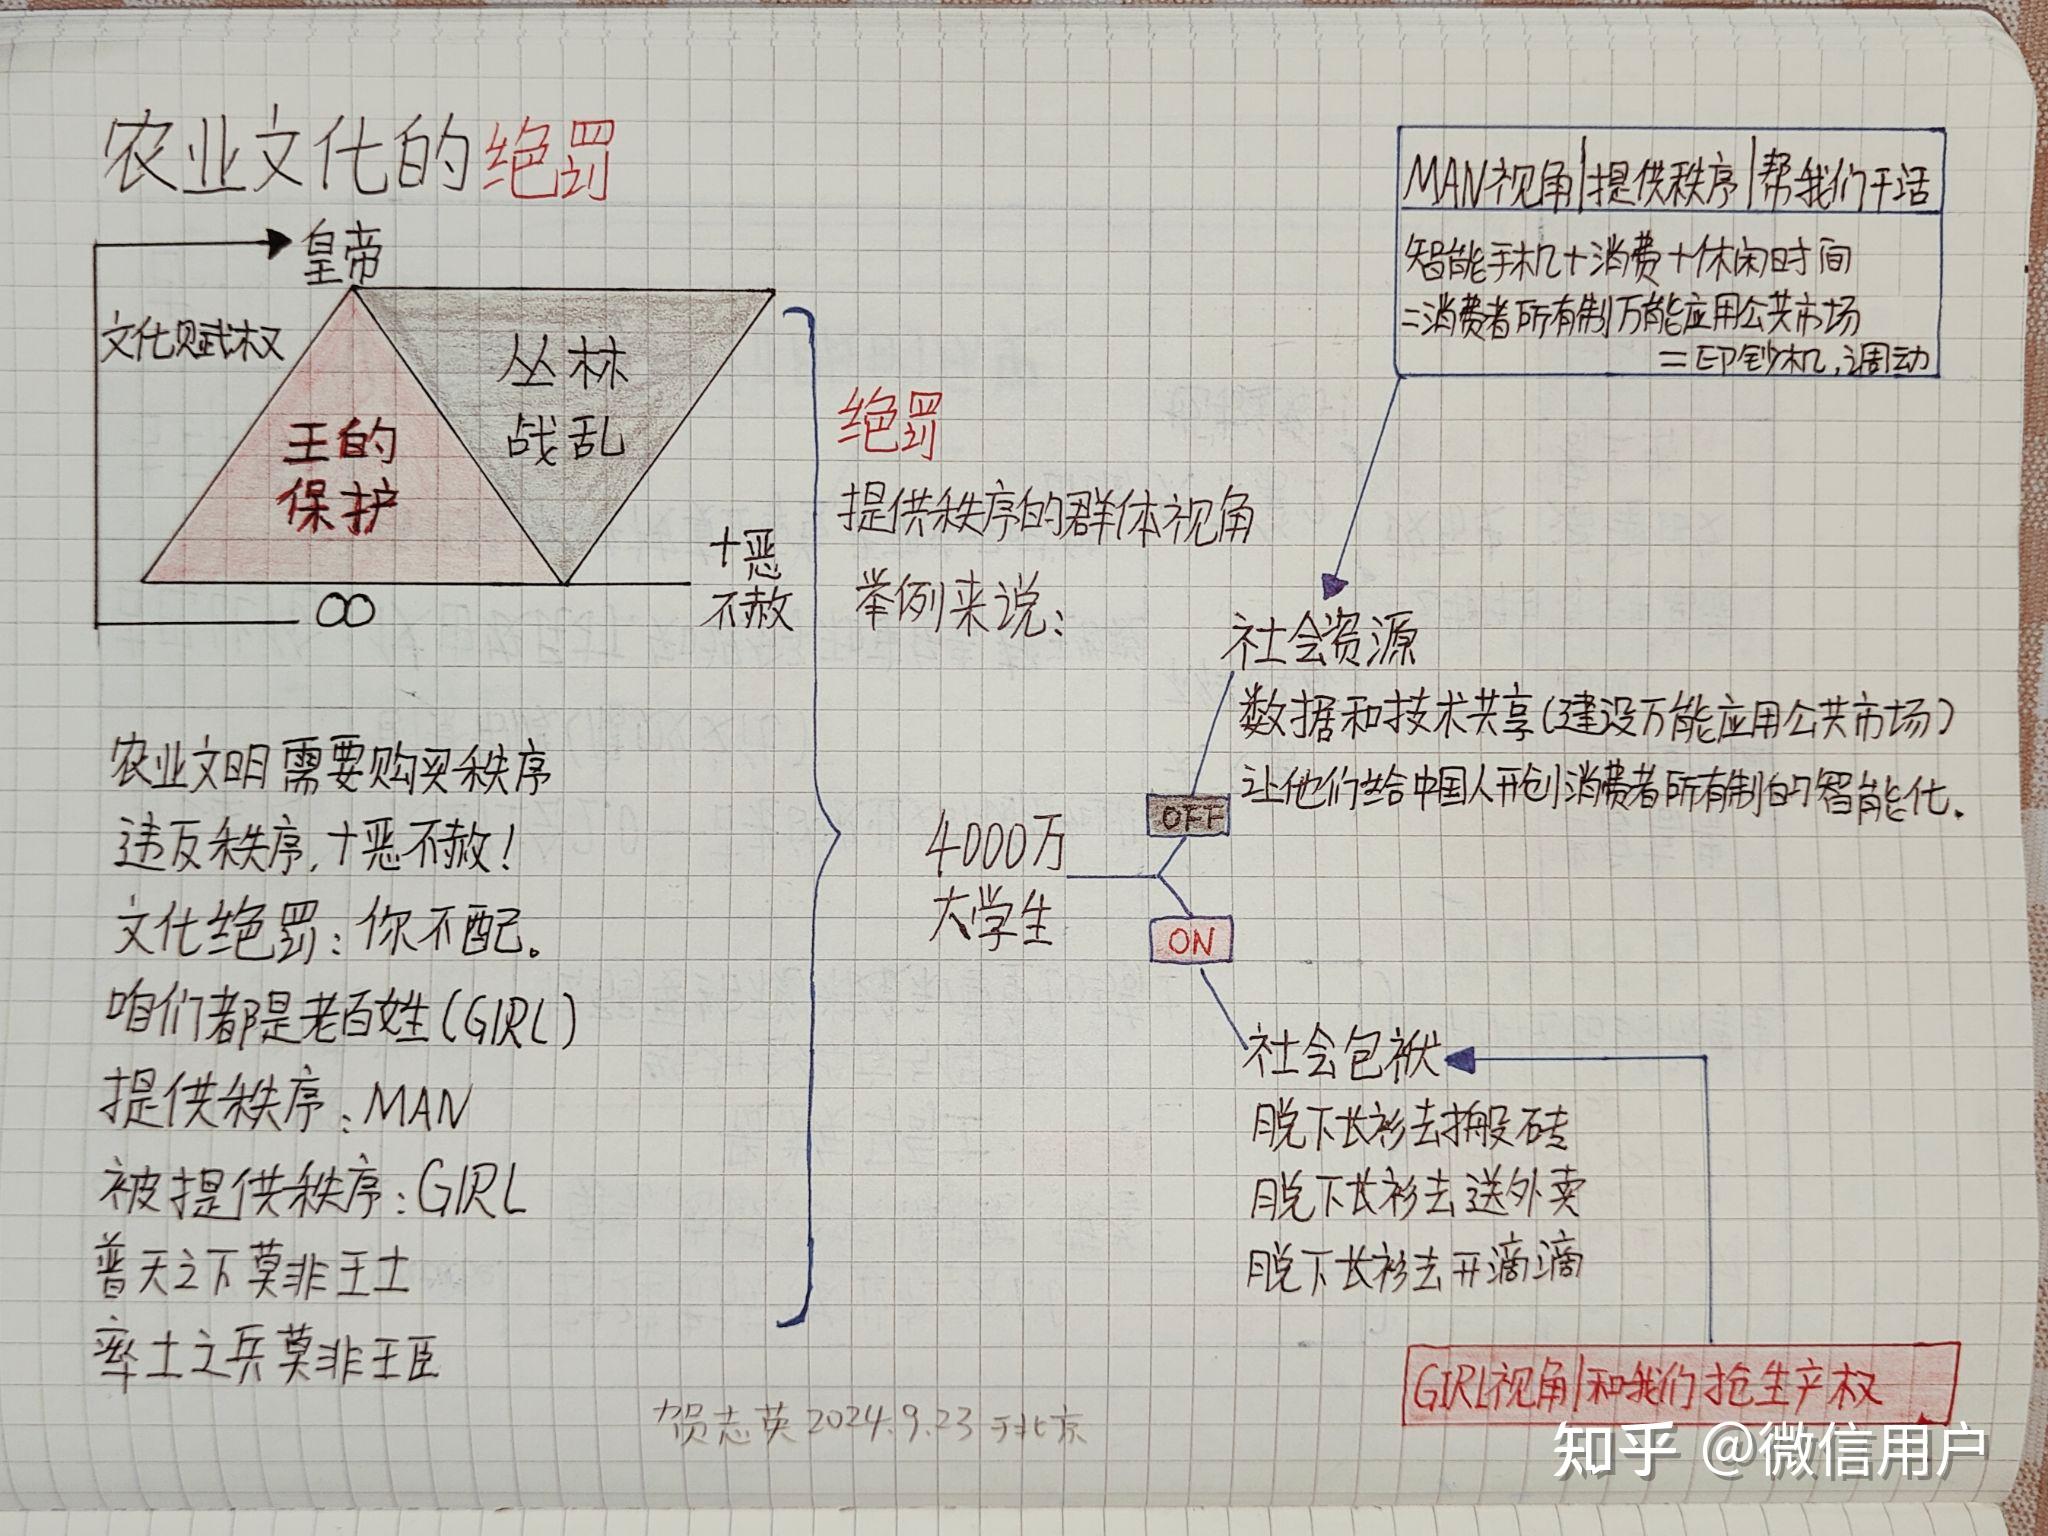 农业文化的绝罚
皇帝
文化赋权
王的
保护
丛林
战乱
∞
十恶
不赦
农业文明需要购买秩序
违反秩序,十恶不赦!
文化绝罚:你不配。
咱们都是老百姓(GIRL)
提供秩序:MAN
被提供秩序:GIRL
普天之下莫非王土
率土之兵莫非王臣
绝罚
提供秩序的群体视角
举例来说:
4000万
大学生
MAN视角|提供秩序|帮我们干活
智能手机+消费+休闲时间
=消费者所有制万能应用公共市场
=印钞机,调动
社会资源
数据和技术共享(建设万能应用公共市场)
让他们给中国人开创消费者所有制的智能化.
OFF
ON
社会包袱
脱下长衫去搬砖
脱下长衫去送外卖
脱下长衫去开滴滴
GIRL视角|和我们抢生产权
贺志英2024.9.23于北京
知乎 @微信用户